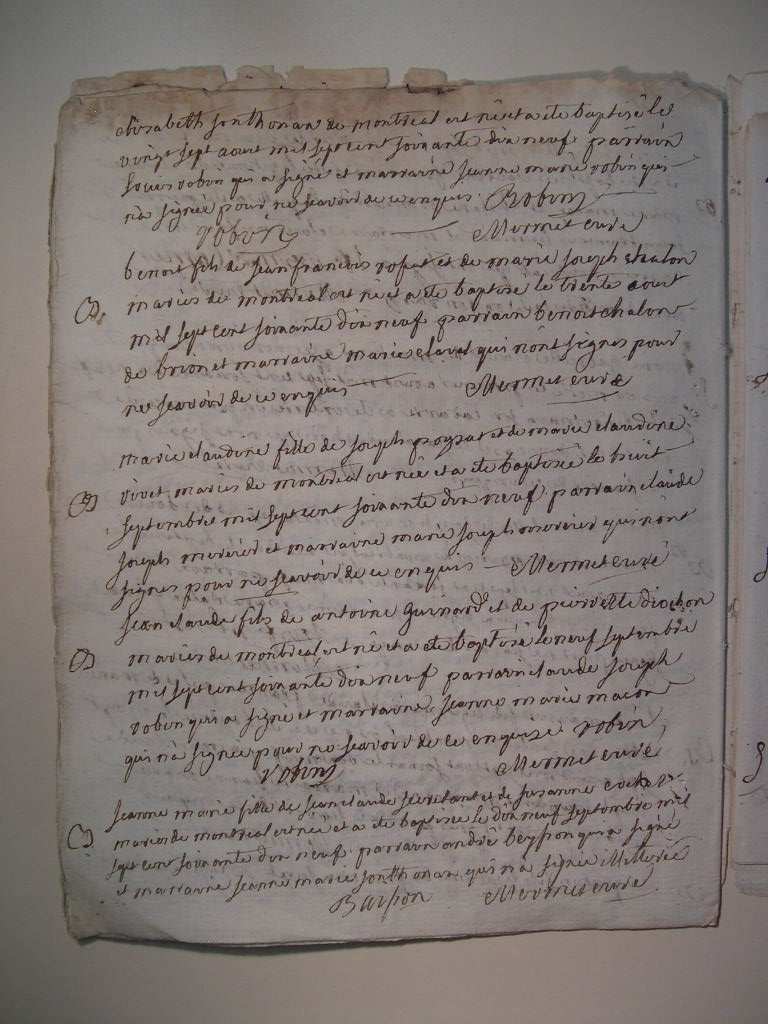 elisabeth jonthonan de montreal est née et a ete baptisé le
vingt sept aout mil sept cent soixante dix neuf parrain
louis robin qui a signé et marraine jeanne marie robin qui
n'a signée pour ne scavoir de ce enquis. Robin
robin Mermet curé
benoit fils de jean francois rofet et de marie joseph chalon
mariés de montréal est né et a ete baptisé le trente aout
mil sept cent soixante dix neuf parrain benoit chalon
de brion et marraine marie claret qui n'ont signés pour
ne scavoir de ce enquis Mermet curé
marie claudine fille de joseph poysat et de marie claudine
vivet mariés de montréal est née et a ete baptisée le huit
septembre mil sept cent soixante dix neuf parrain claude
joseph mercier et marraine marie joseph mercier qui n'ont
signés pour ne scavoir de ce enquis Mermet curé
jean claude fils de antoine guinard et de pierrette diochon
mariés de montréal est né et a ete baptisé le neuf septembre
mil sept cent soixante dix neuf parrain claude joseph
robin qui a signé et marraine jeanne marie macon
qui n'a signée pour ne scavoir de ce enquise robin
robin Mermet curé
jeanne marie fille de jean claude secretant et de susanne
mariés de montréal est née et a ete baptisée le dix neuf septembre mil
sept cent soixante dix neuf parrain andré beysson qui a signé
et marraine jeanne marie jonthonan qui n'a signée illitterée
Baisson Mermet curé